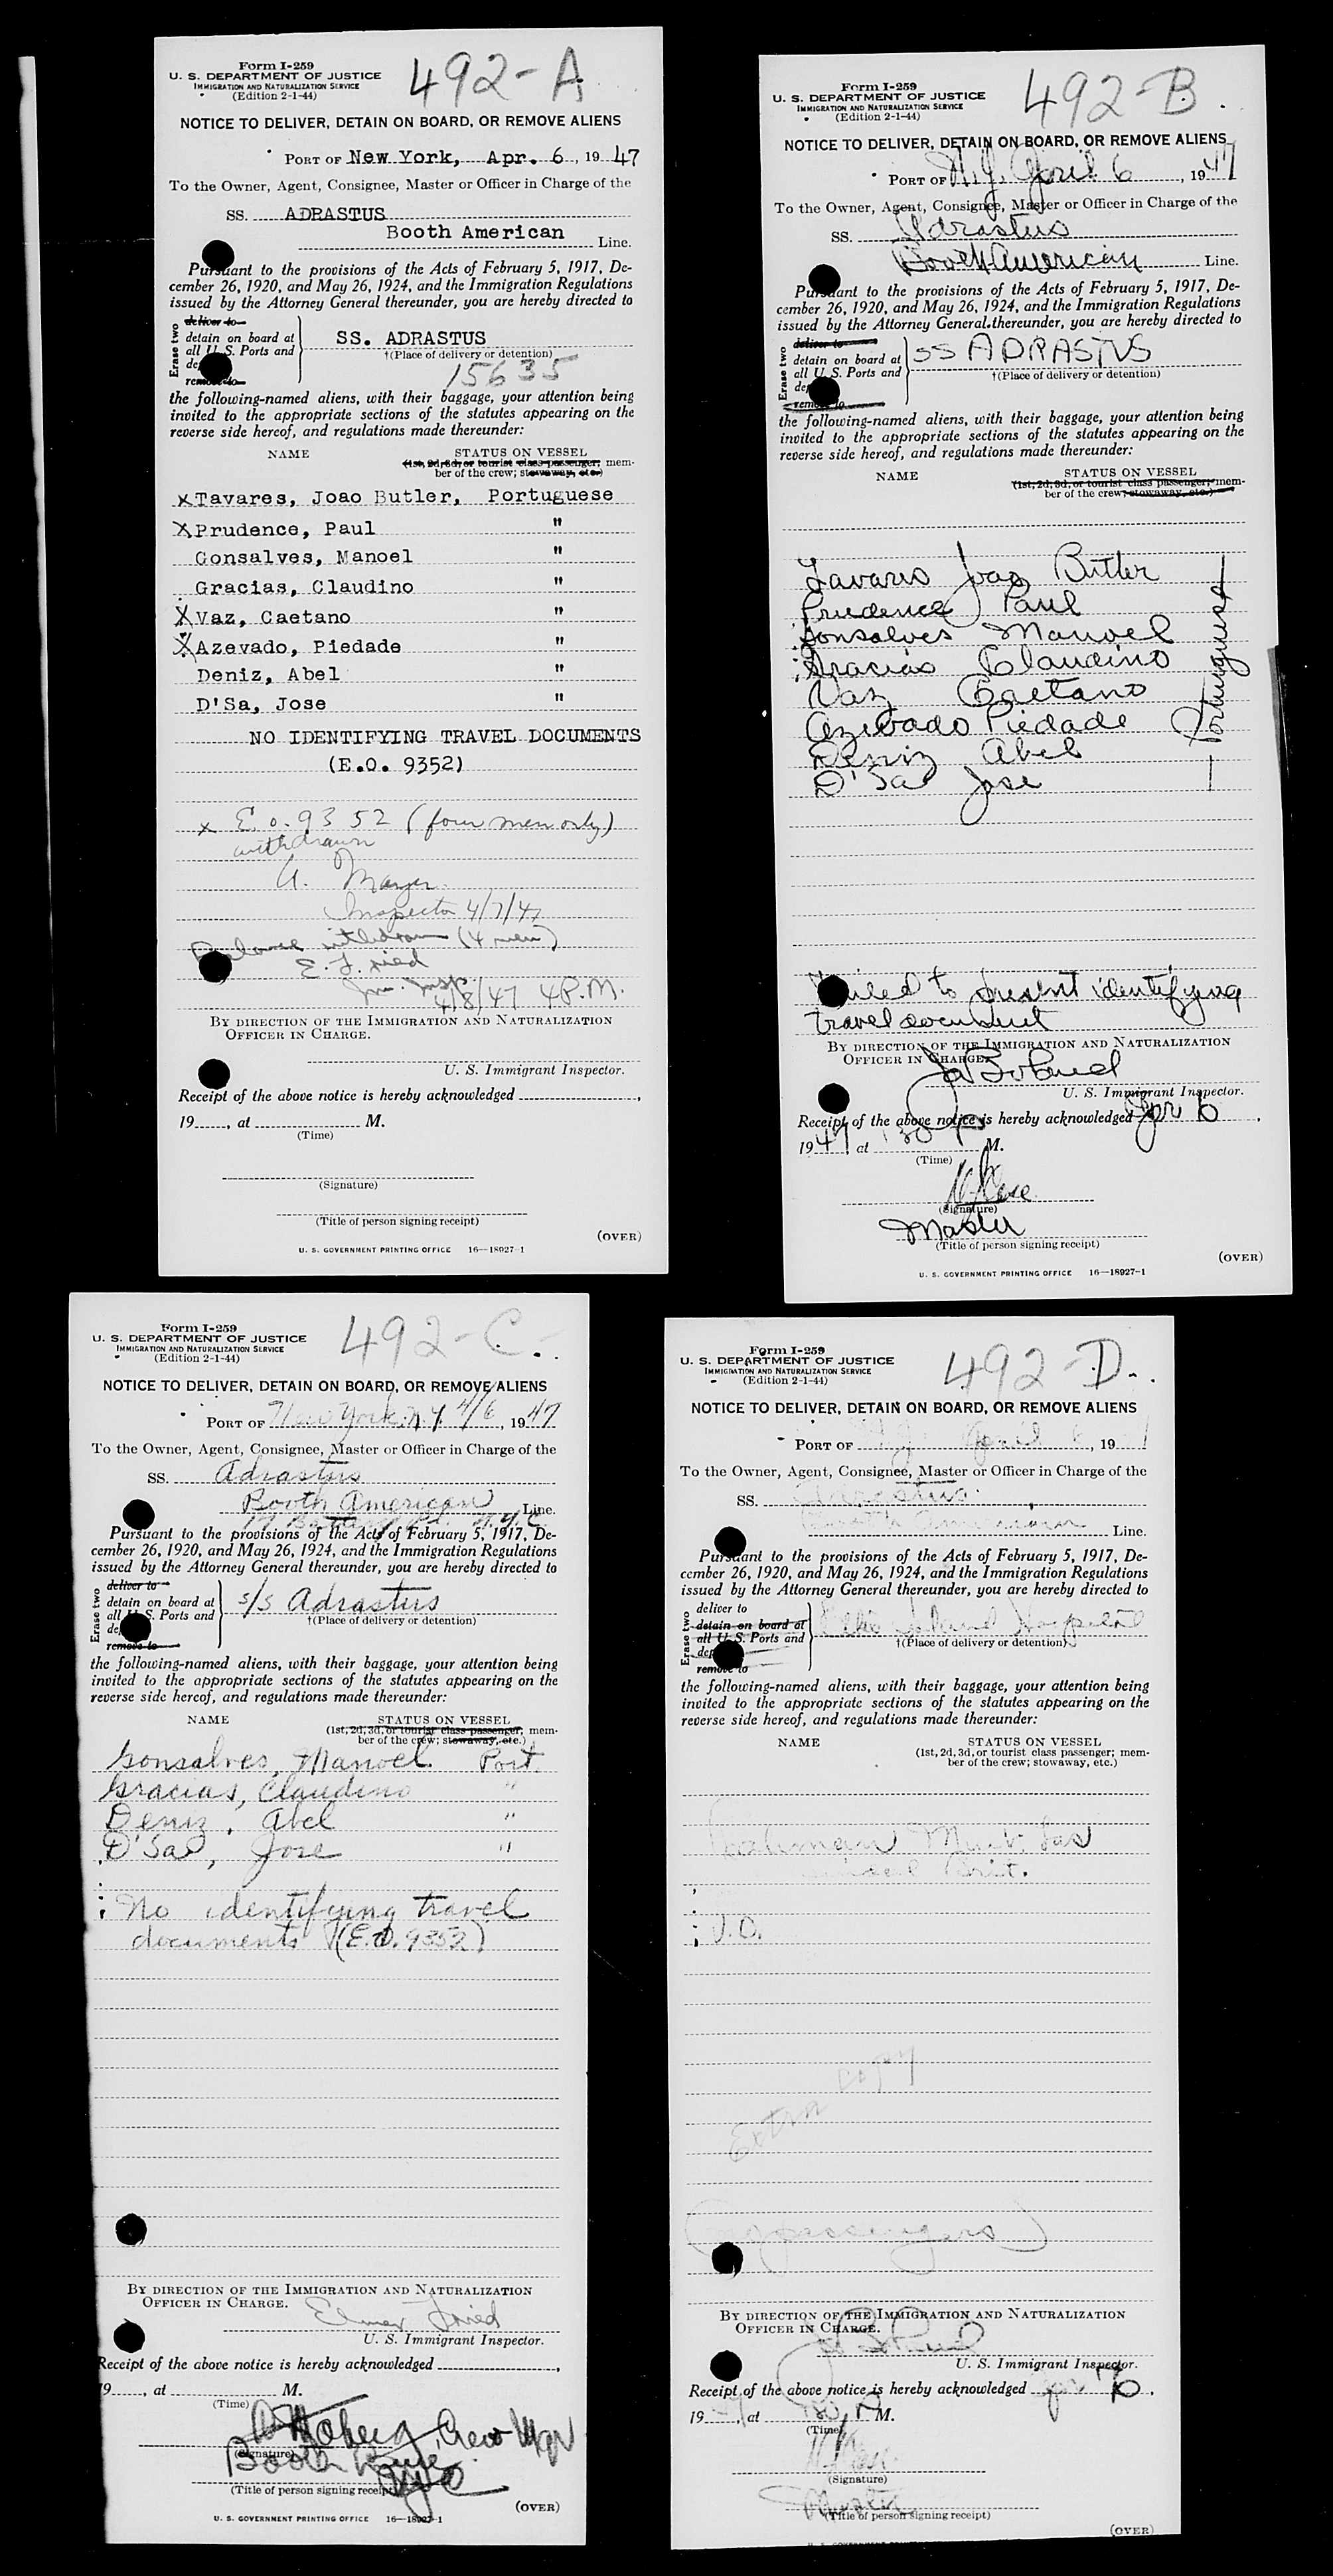 Form I-259
U. S. DEPARTMENT OF JUSTICE
IMMIGRATION AND NATURALIZATION SERVICE
(Edition 2-1-44)
492-A
NOTICE TO DELIVER, DETAIN ON BOARD, OR REMOVE ALIENS
PORT OF New York, Apr. 6, 1947
To the Owner, Agent, Consignee, Master or Officer in Charge of the
SS. ADRASTUS
Booth American Line.
Pursuant to the provisions of the Acts of February 5, 1917, De-
cember 26, 1920, and May 26, 1924, and the Immigration Regulations
issued by the Attorney General thereunder, you are hereby directed to
Erase two
deliver to
detain on board at
all U. S. Ports and
de
remove to
SS. ADRASTUS
†(Place of delivery or detention)
15635
the following-named aliens, with their baggage, your attention being
invited to the appropriate sections of the statutes appearing on the
reverse side hereof, and regulations made thereunder:
NAME STATUS ON VESSEL
(1st, 2d, 3d, or tourist class passenger; mem-
ber of the crew; stowaway, etc.)
x Tavares, Joao Butler, Portuguese
x Prudence, Paul "
Gonsalves, Manoel "
Gracias, Claudino "
x Vaz, Caetano "
x Azevado, Piedade "
Deniz, Abel "
D'Sa, Jose "
NO IDENTIFYING TRAVEL DOCUMENTS
(E.O. 9352)
x E.o. 9352 (four men only)
withdrawn
A. Mayer
Inspector 4/7/47
Balance withdrawn (4 men)
E. F. ried
Im. Insp.
4/8/47 4 P.M.
BY DIRECTION OF THE IMMIGRATION AND NATURALIZATION
OFFICER IN CHARGE.
U. S. Immigrant Inspector.
Receipt of the above notice is hereby acknowledged ,
19 , at M.
(Time)
(Signature)
(Title of person signing receipt)
(OVER)
U. S. GOVERNMENT PRINTING OFFICE 16—18927-1
Form I-259
U. S. DEPARTMENT OF JUSTICE
IMMIGRATION AND NATURALIZATION SERVICE
(Edition 2-1-44)
492-B.
NOTICE TO DELIVER, DETAIN ON BOARD, OR REMOVE ALIENS
PORT OF N.Y. April 6, 1947
To the Owner, Agent, Consignee, Master or Officer in Charge of the
SS. Adrastus
Booth American Line.
Pursuant to the provisions of the Acts of February 5, 1917, De-
cember 26, 1920, and May 26, 1924, and the Immigration Regulations
issued by the Attorney General thereunder, you are hereby directed to
Erase two
deliver to
detain on board at
all U. S. Ports and
dep
remove to
SS ADRASTUS
†(Place of delivery or detention)
the following-named aliens, with their baggage, your attention being
invited to the appropriate sections of the statutes appearing on the
reverse side hereof, and regulations made thereunder:
NAME STATUS ON VESSEL
(1st, 2d, 3d, or tourist class passenger; mem-
ber of the crew; stowaway, etc.)
Tavares Joao Butler
Prudence Paul
Gonsalves Manoel
Gracias Claudino
Vaz Caetano
Azevado Piedade
Deniz Abel
D'Sa Jose
Portuguese
Failed to present identifying
travel document
BY DIRECTION OF THE IMMIGRATION AND NATURALIZATION
OFFICER IN CHARGE.
U. S. Immigrant Inspector.
Receipt of the above notice is hereby acknowledged Apr 6,
1947 at 130 P M.
(Time)
(Signature)
Master
(Title of person signing receipt)
(OVER)
U. S. GOVERNMENT PRINTING OFFICE 16—18927-1
Form I-259
U. S. DEPARTMENT OF JUSTICE
IMMIGRATION AND NATURALIZATION SERVICE
(Edition 2-1-44)
492-C.
NOTICE TO DELIVER, DETAIN ON BOARD, OR REMOVE ALIENS
PORT OF New York, N.Y. 4/6, 1947
To the Owner, Agent, Consignee, Master or Officer in Charge of the
SS. Adrastus
Booth American Line.
17 Battery N.Y.C.
Pursuant to the provisions of the Acts of February 5, 1917, De-
cember 26, 1920, and May 26, 1924, and the Immigration Regulations
issued by the Attorney General thereunder, you are hereby directed to
Erase two
deliver to
detain on board at
all U. S. Ports and
de
remove to
s/s Adrastus
†(Place of delivery or detention)
the following-named aliens, with their baggage, your attention being
invited to the appropriate sections of the statutes appearing on the
reverse side hereof, and regulations made thereunder:
NAME STATUS ON VESSEL
(1st, 2d, 3d, or tourist class passenger, mem-
ber of the crew; stowaway, etc.)
Gonsalves, Manoel Port.
Gracias, Claudino "
Deniz, Abel "
D'Sa, Jose "
No identifying travel
documents (E.O. 9352)
BY DIRECTION OF THE IMMIGRATION AND NATURALIZATION
OFFICER IN CHARGE.
Elmer Fried
U. S. Immigrant Inspector.
Receipt of the above notice is hereby acknowledged ,
19 , at M.
(Time)
Crew Mgr
(Signature)
Booth Line
NYC
(Title of person signing receipt)
(OVER)
U. S. GOVERNMENT PRINTING OFFICE 16—18927-1
Form I-259
U. S. DEPARTMENT OF JUSTICE
IMMIGRATION AND NATURALIZATION SERVICE
(Edition 2-1-44)
492-D.
NOTICE TO DELIVER, DETAIN ON BOARD, OR REMOVE ALIENS
PORT OF N.Y. April 6, 19
To the Owner, Agent, Consignee, Master or Officer in Charge of the
SS. Adrastus
Booth American Line.
Pursuant to the provisions of the Acts of February 5, 1917, De-
cember 26, 1920, and May 26, 1924, and the Immigration Regulations
issued by the Attorney General thereunder, you are hereby directed to
Erase two
deliver to
detain on board at
all U. S. Ports and
dep
remove to
Ellis Island Hospital
†(Place of delivery or detention)
the following-named aliens, with their baggage, your attention being
invited to the appropriate sections of the statutes appearing on the
reverse side hereof, and regulations made thereunder:
NAME STATUS ON VESSEL
(1st, 2d, 3d, or tourist class passenger; mem-
ber of the crew; stowaway, etc.)
Brit.
V.D.
Extra copy
(no passengers)
BY DIRECTION OF THE IMMIGRATION AND NATURALIZATION
OFFICER IN CHARGE.
U. S. Immigrant Inspector.
Receipt of the above notice is hereby acknowledged Apr 6,
1947, at 130 P M.
(Time)
(Signature)
Master
(Title of person signing receipt)
(OVER)